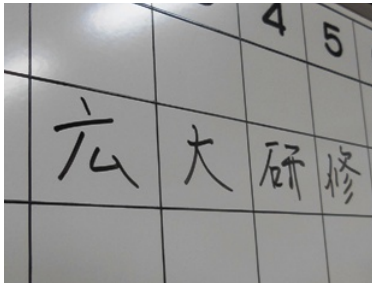 4 5
広大研修